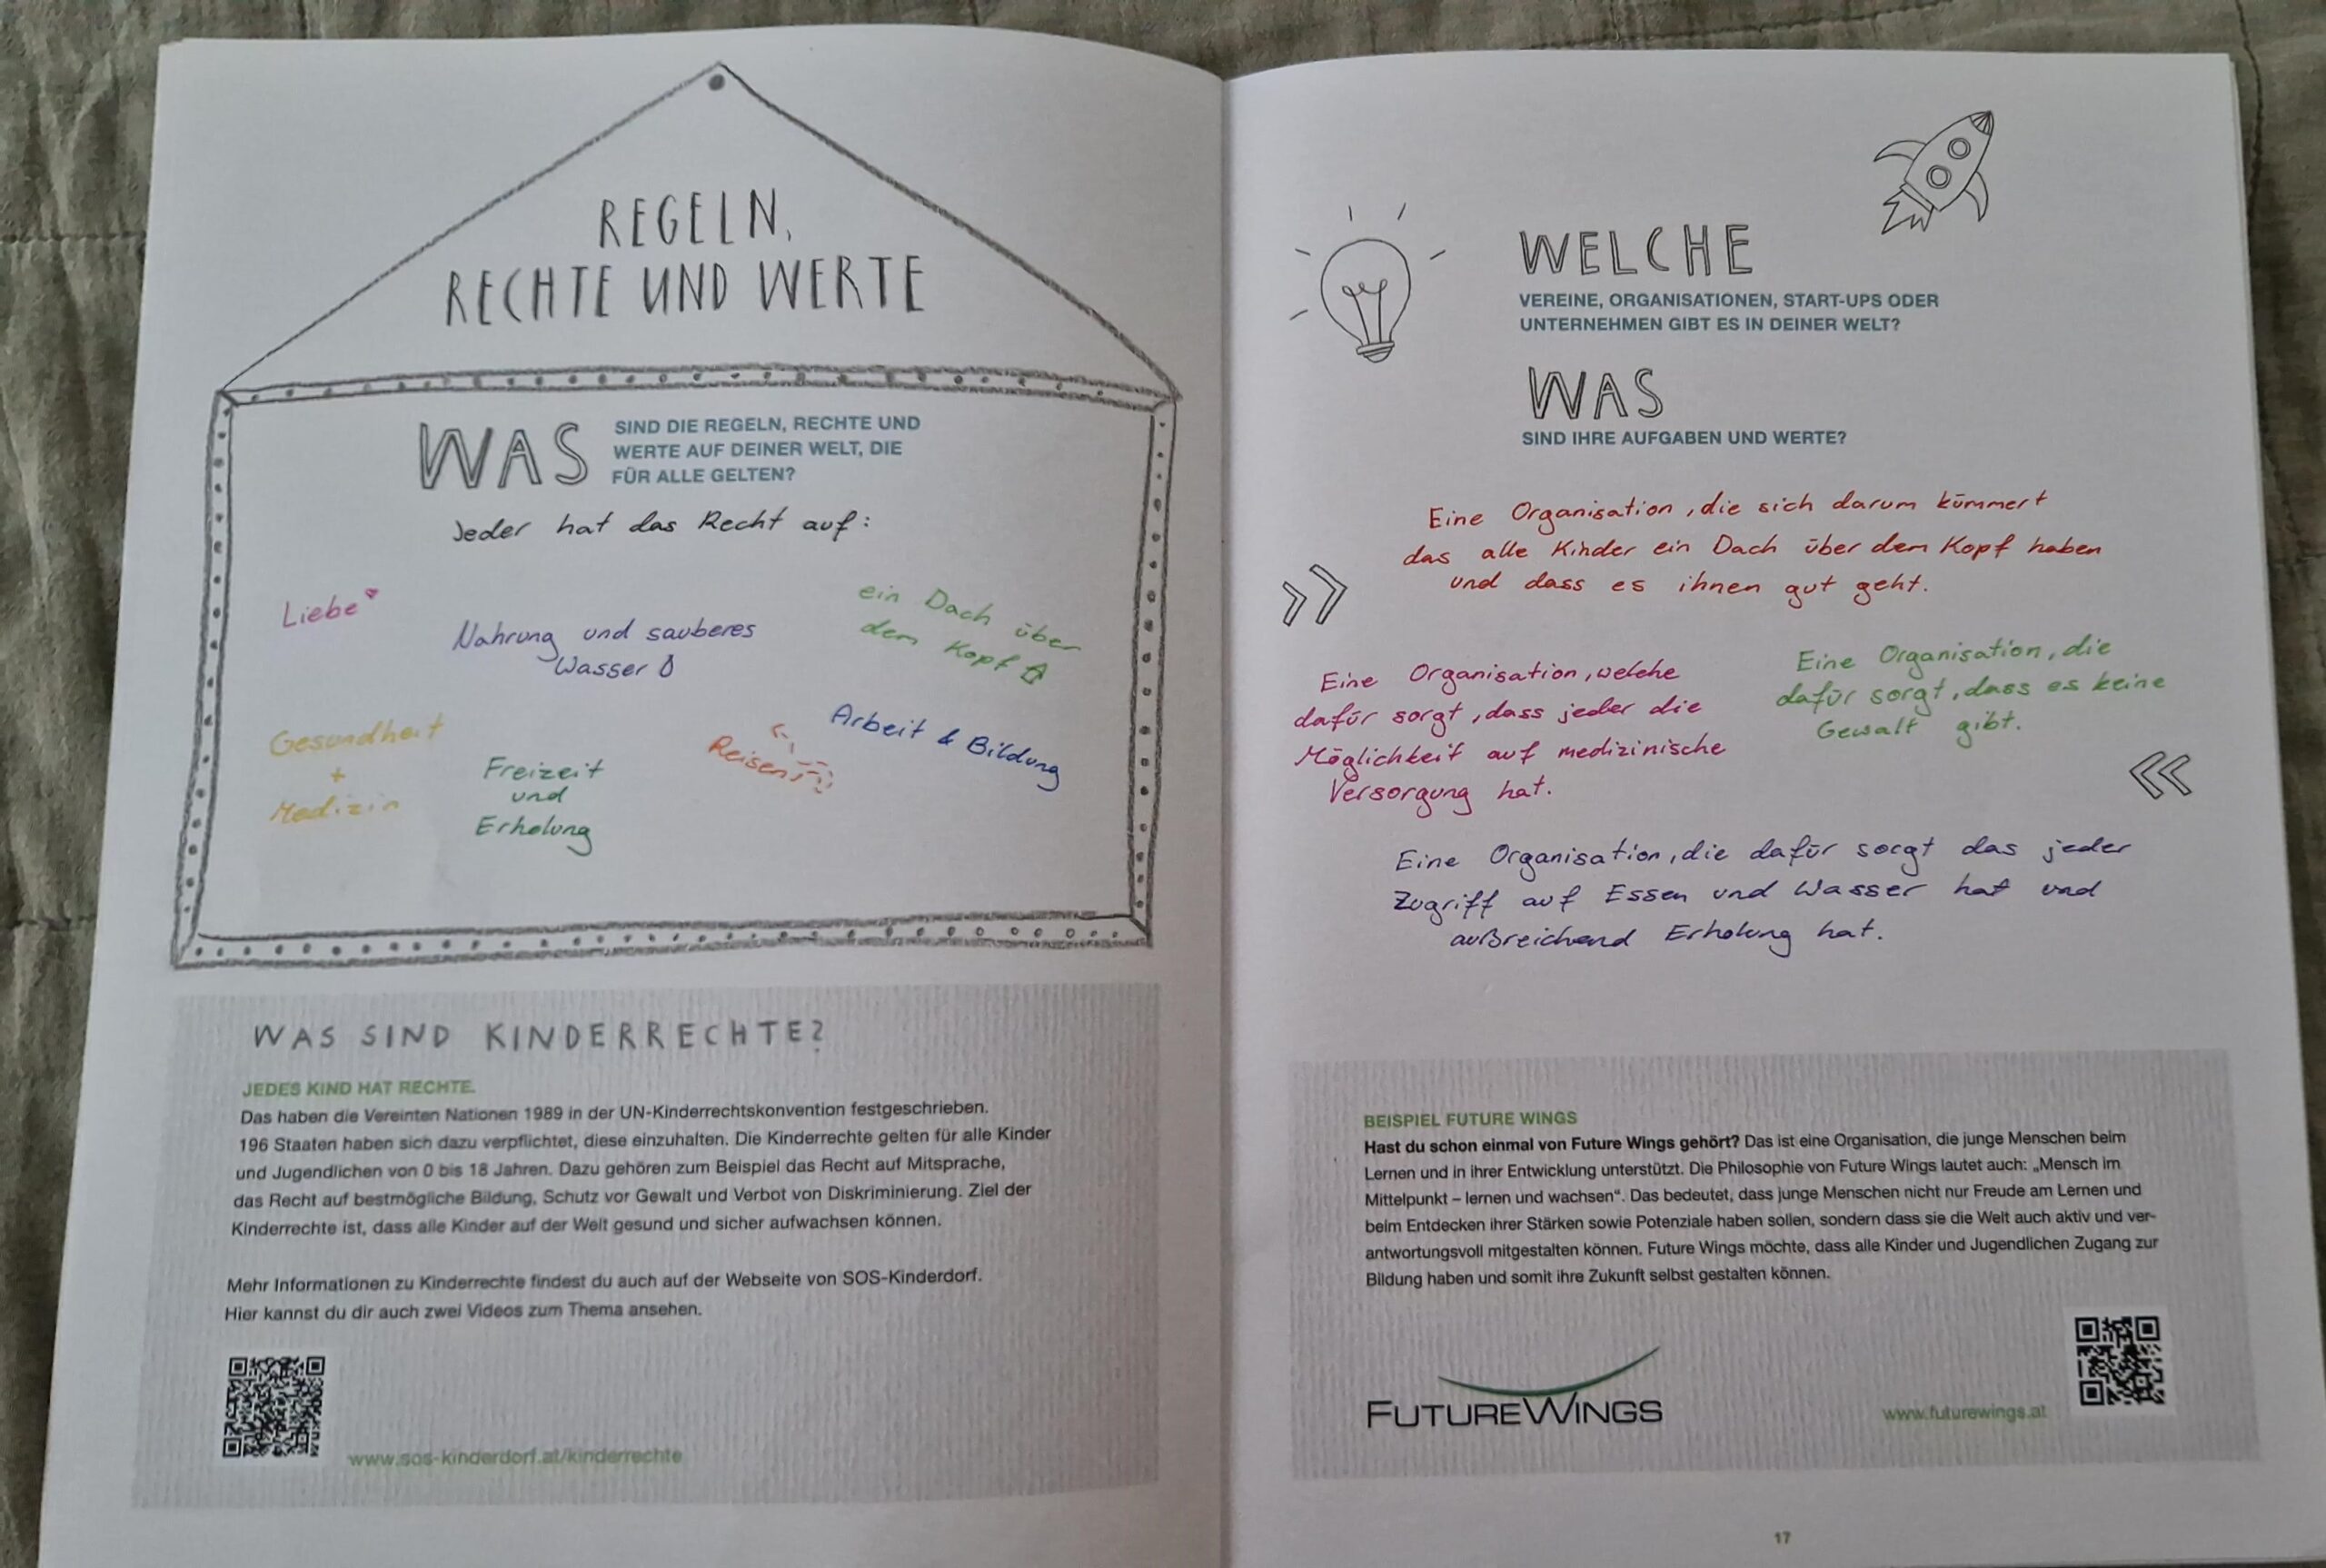 REGELN,
RECHTE UND WERTE
WAS
SIND DIE REGELN, RECHTE UND
WERTE AUF DEINER WELT, DIE
FÜR ALLE GELTEN?
Jeder hat das Recht auf:
Liebe
Nahrung und sauberes
Wasser
ein Dach über
dem Kopf
Gesundheit
+
Medizin
Freizeit
und
Erholung
Reisen
Arbeit & Bildung
WAS SIND KINDERRECHTE?
JEDES KIND HAT RECHTE.
Das haben die Vereinten Nationen 1989 in der UN-Kinderrechtskonvention festgeschrieben.
196 Staaten haben sich dazu verpflichtet, diese einzuhalten. Die Kinderrechte gelten für alle Kinder
und Jugendlichen von 0 bis 18 Jahren. Dazu gehören zum Beispiel das Recht auf Mitsprache,
das Recht auf bestmögliche Bildung, Schutz vor Gewalt und Verbot von Diskriminierung. Ziel der
Kinderrechte ist, dass alle Kinder auf der Welt gesund und sicher aufwachsen können.
Mehr Informationen zu Kinderrechte findest du auch auf der Webseite von SOS-Kinderdorf.
Hier kannst du dir auch zwei Videos zum Thema ansehen.
www.sos-kinderdorf.at/kinderrechte
WELCHE
VEREINE, ORGANISATIONEN, START-UPS ODER
UNTERNEHMEN GIBT ES IN DEINER WELT?
WAS
SIND IHRE AUFGABEN UND WERTE?
Eine Organisation, die sich darum kümmert
das alle Kinder ein Dach über dem Kopf haben
und dass es ihnen gut geht.
Eine Organisation, welche
dafür sorgt, dass jeder die
Möglichkeit auf medizinische
Versorgung hat.
Eine Organisation, die
dafür sorgt, dass es keine
Gewalt gibt.
Eine Organisation, die dafür sorgt das jeder
Zugriff auf Essen und Wasser hat und
außreichend Erholung hat.
BEISPIEL FUTURE WINGS
Hast du schon einmal von Future Wings gehört? Das ist eine Organisation, die junge Menschen beim
Lernen und in ihrer Entwicklung unterstützt. Die Philosophie von Future Wings lautet auch: „Mensch im
Mittelpunkt – lernen und wachsen“. Das bedeutet, dass junge Menschen nicht nur Freude am Lernen und
beim Entdecken ihrer Stärken sowie Potenziale haben sollen, sondern dass sie die Welt auch aktiv und ver-
antwortungsvoll mitgestalten können. Future Wings möchte, dass alle Kinder und Jugendlichen Zugang zur
Bildung haben und somit ihre Zukunft selbst gestalten können.
FUTUREWINGS
www.futurewings.at
17